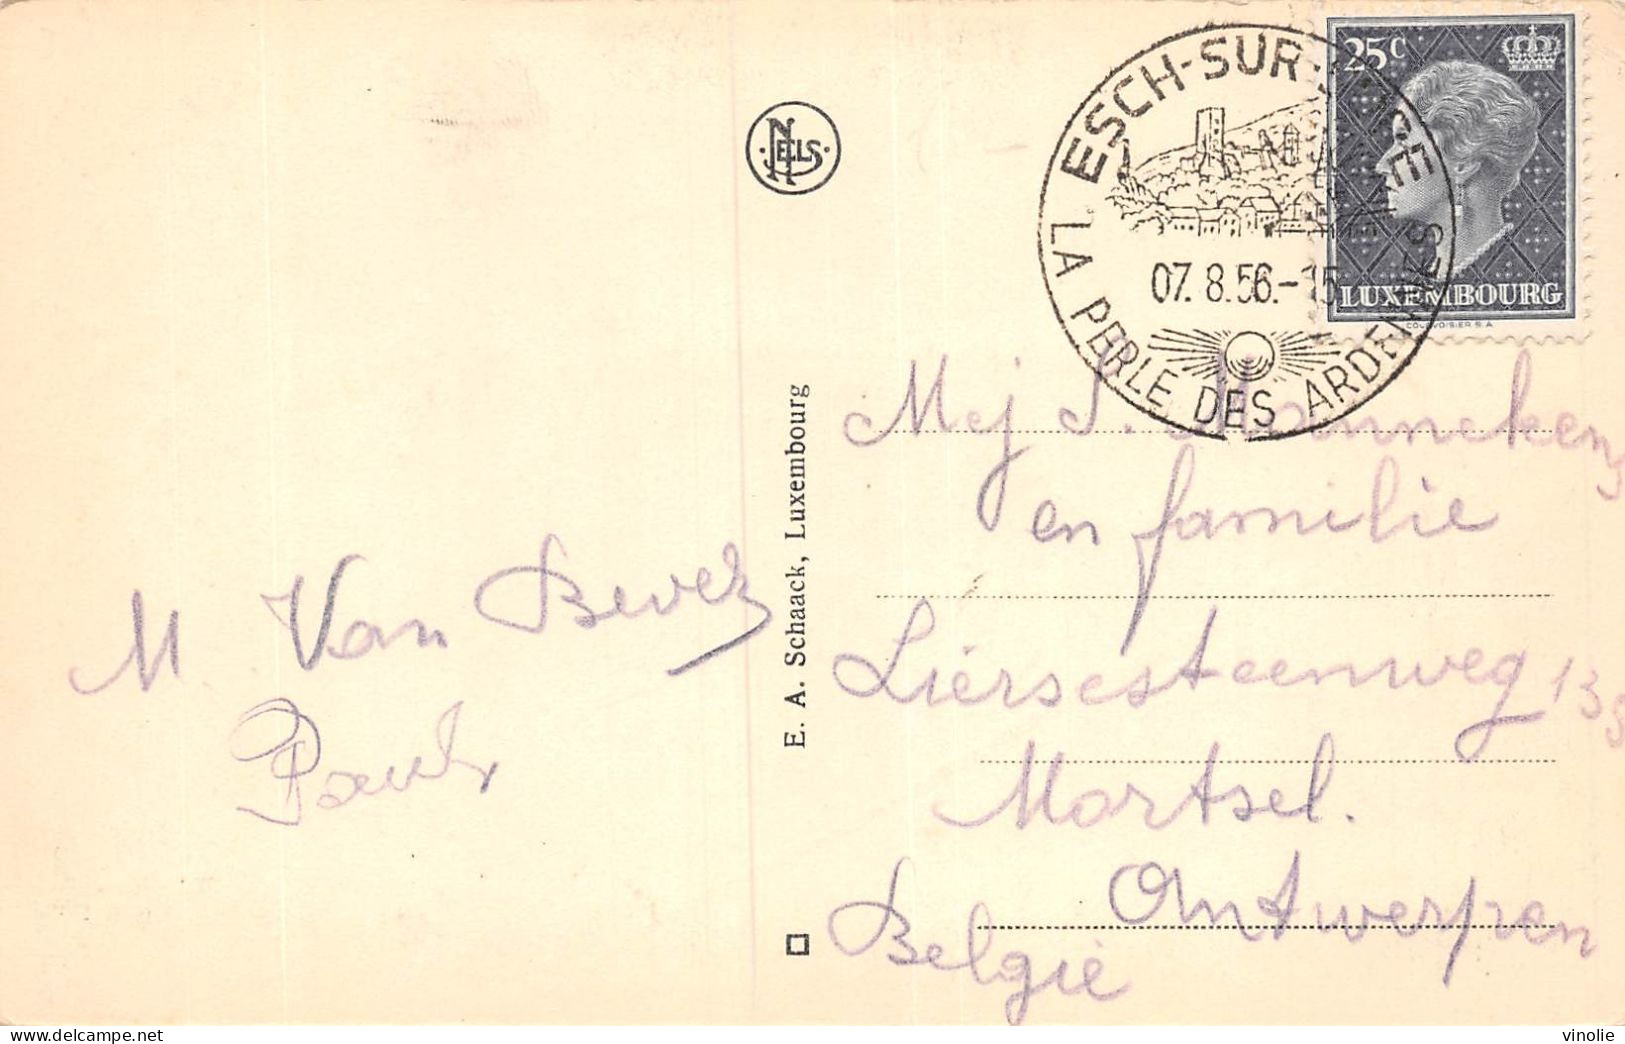 ESCH-SUR-
LA PERLE DES ARDENNES
07.8.56.-15
25C
LUXEMBOURG
COURVOISIER S.A.
NELS
E. A. Schaack, Luxembourg
Mej S. Manneken
en familie
Liersesteenweg 13
Mortsel.
Antwerpen
België
M Van Bever
delcampe.net
vinolie